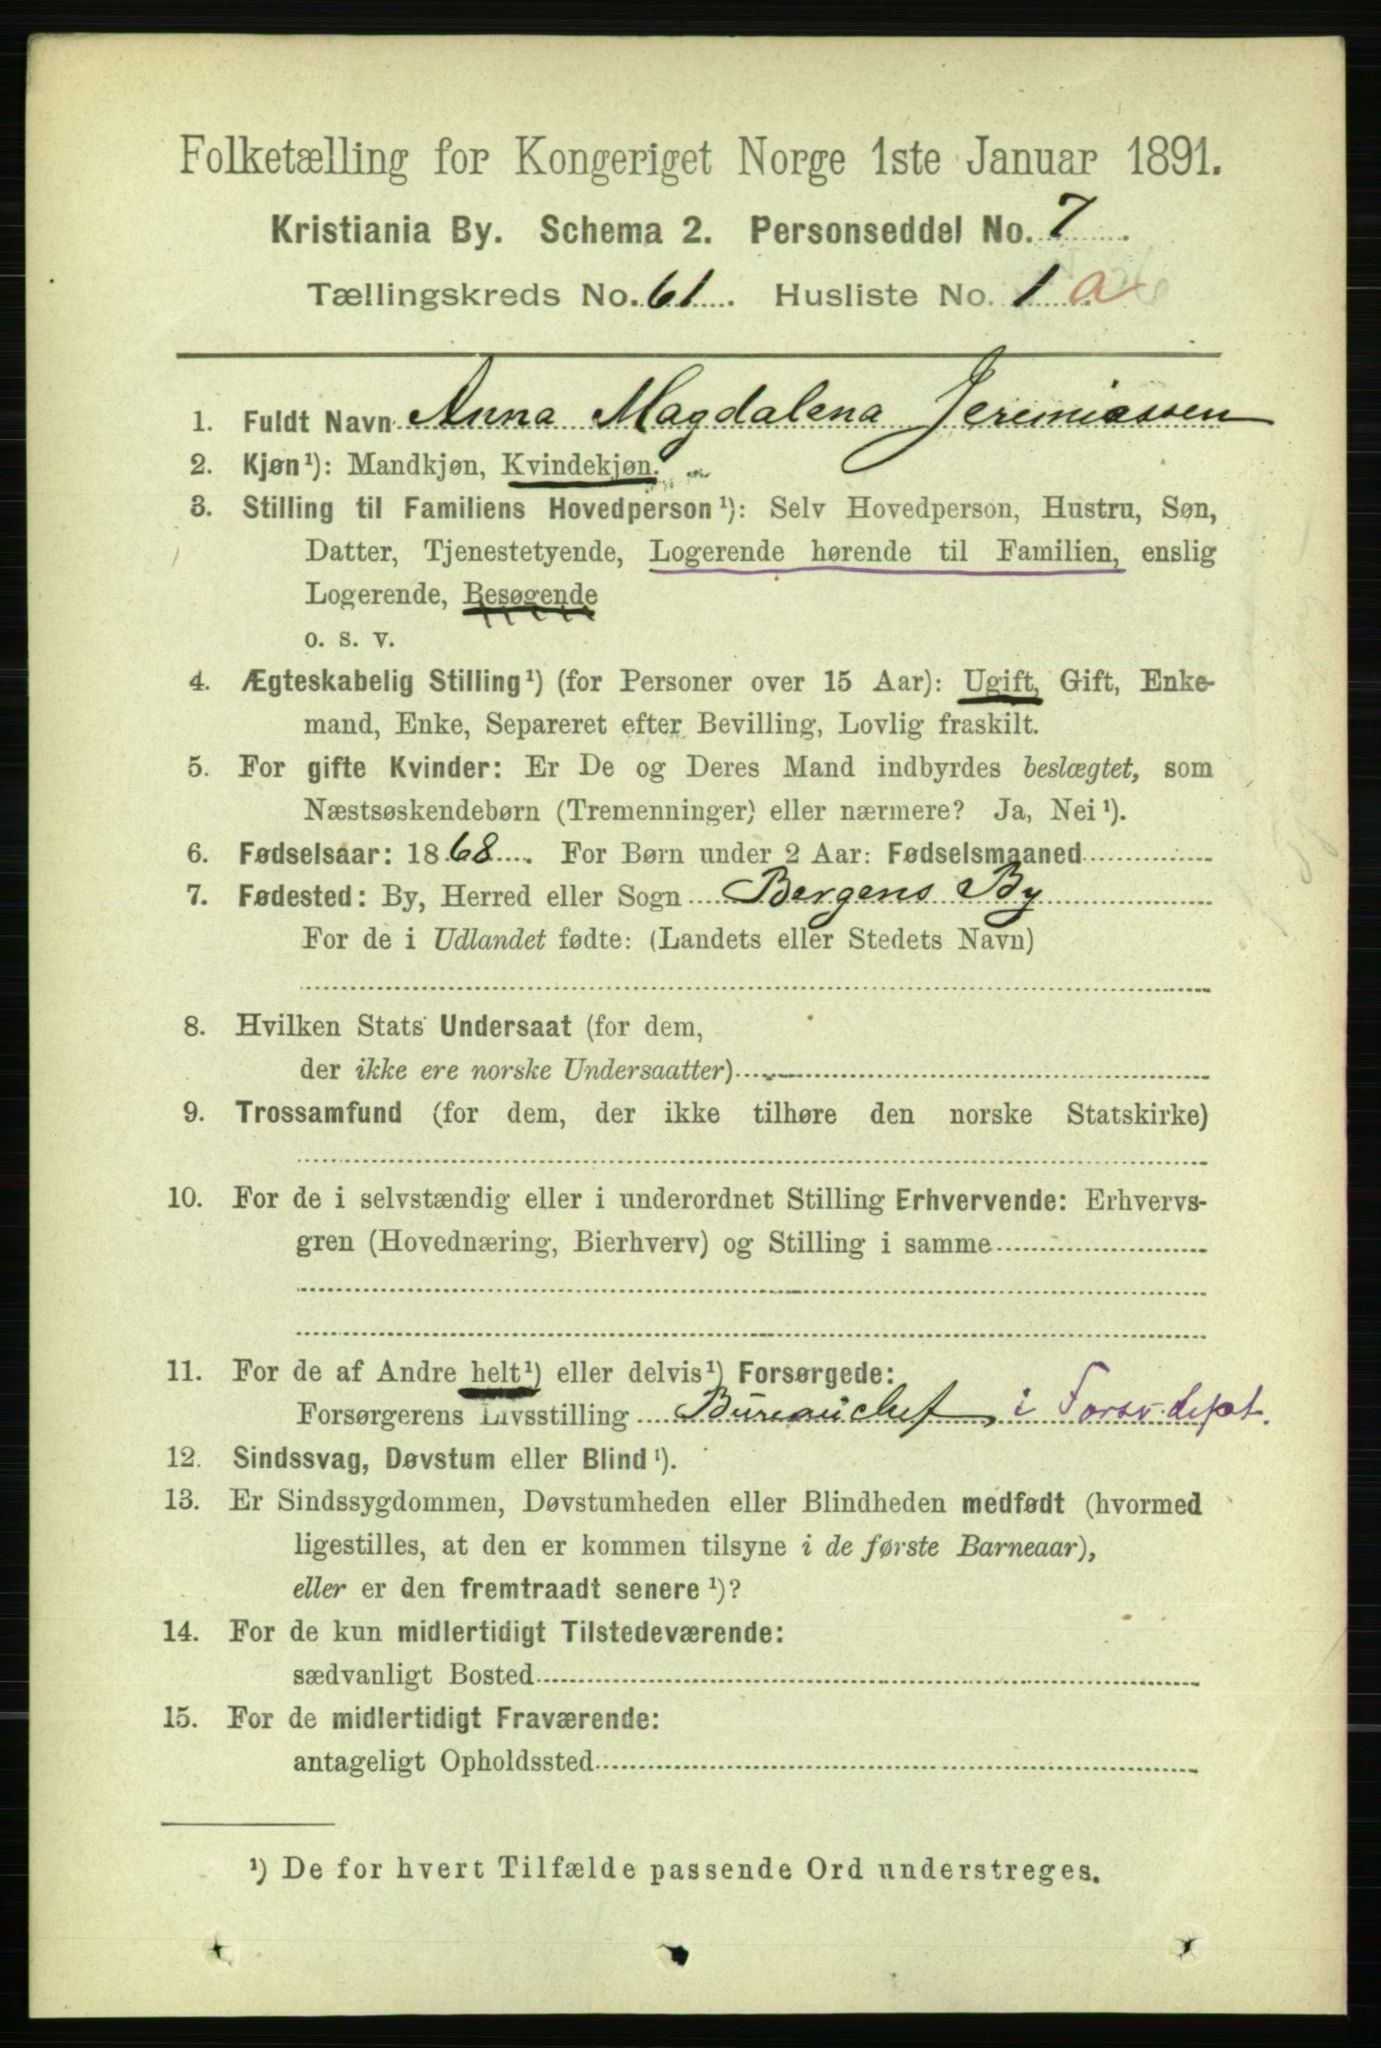 Folketælling for Kongeriget Norge 1ste Januar 1891.
Kristiania By. Schema 2. Personseddel No. 7
Tællingskreds No. 61. Husliste No. 1 a
1. Fuldt Navn Anna Magdalena Jeremiassen
2. Kjøn¹): Mandkjøn, Kvindekjøn.
3. Stilling til Familiens Hovedperson¹): Selv Hovedperson, Hustru, Søn,
Datter, Tjenestetyende, Logerende hørende til Familien, enslig
Logerende, Besøgende
o. s. v.
4. Ægteskabelig Stilling¹) (for Personer over 15 Aar): Ugift, Gift, Enke-
mand, Enke, Separeret efter Bevilling, Lovlig fraskilt.
5. For gifte Kvinder: Er De og Deres Mand indbyrdes beslægtet, som
Næstsøskendebørn (Tremenninger) eller nærmere? Ja, Nei¹).
6. Fødselsaar: 1868. For Børn under 2 Aar: Fødselsmaaned
7. Fødested: By, Herred eller Sogn Bergens By
For de i Udlandet fødte: (Landets eller Stedets Navn)
8. Hvilken Stats Undersaat (for dem,
der ikke ere norske Undersaatter)
9. Trossamfund (for dem, der ikke tilhøre den norske Statskirke)
10. For de i selvstændig eller i underordnet Stilling Erhvervende: Erhvervs-
gren (Hovednæring, Bierhverv) og Stilling i samme
11. For de af Andre helt¹) eller delvis¹) Forsørgede:
Forsørgerens Livsstilling Bureauchef, i Forsv. dept.
12. Sindssvag, Døvstum eller Blind¹).
13. Er Sindssygdommen, Døvstumheden eller Blindheden medfødt (hvormed
ligestilles, at den er kommen tilsyne i de første Barneaar),
eller er den fremtraadt senere¹)?
14. For de kun midlertidigt Tilstedeværende:
sædvanligt Bosted
15. For de midlertidigt Fraværende:
antageligt Opholdssted
¹) De for hvert Tilfælde passende Ord understreges.